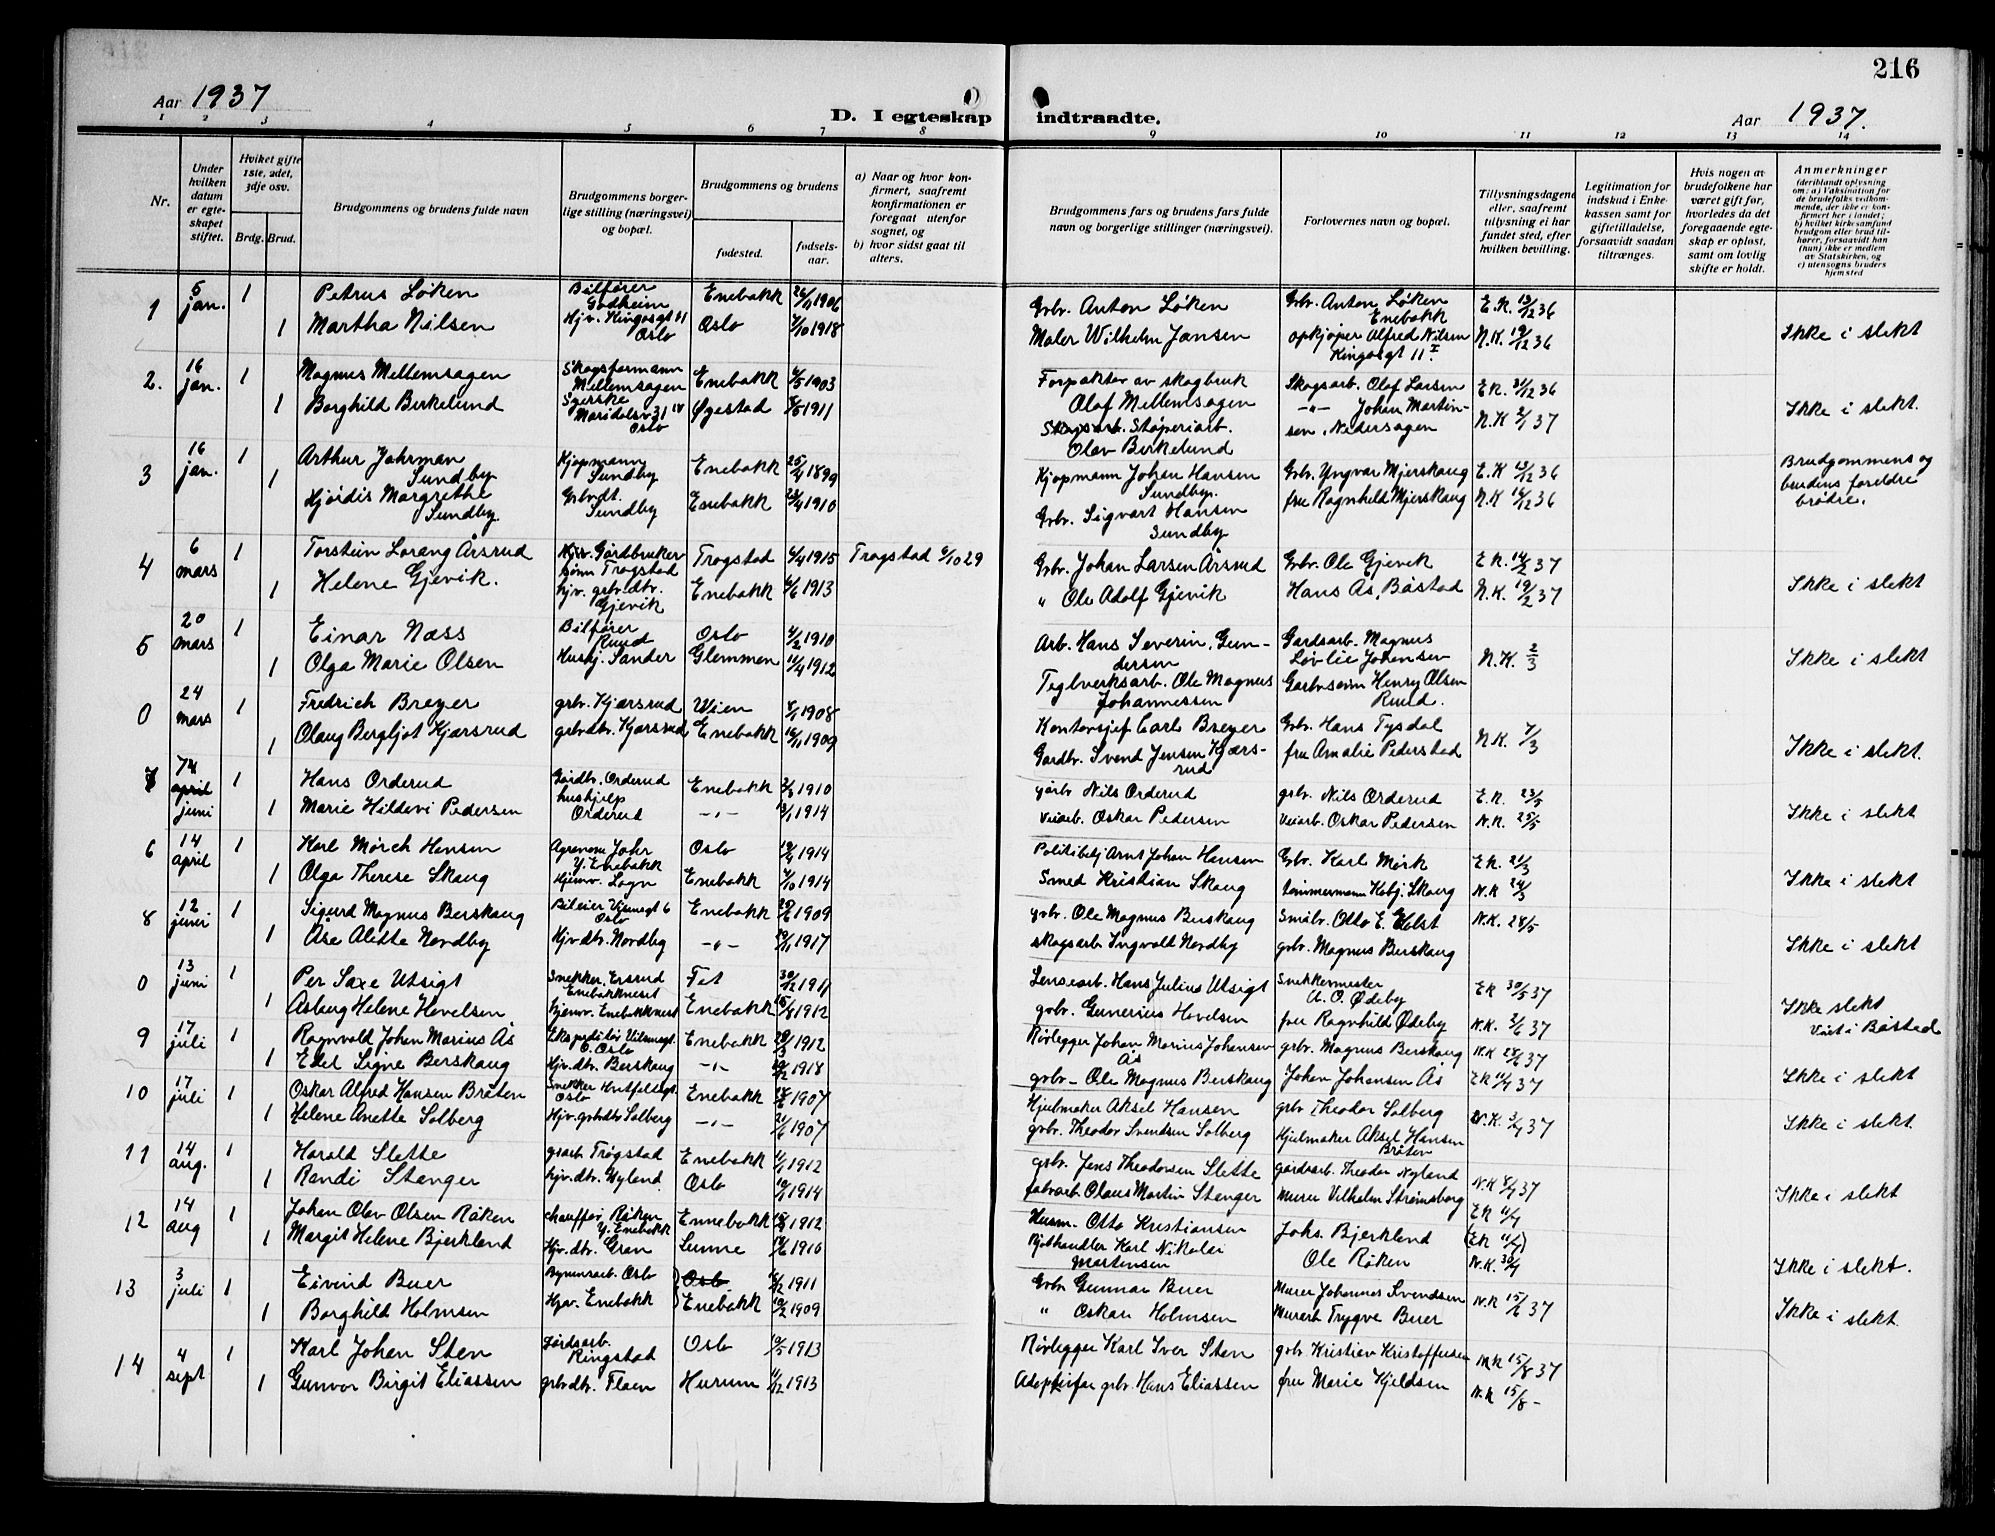 216
Aar 1937
D. I egteskap indtraadte.
Aar 1937.
1 2 3 4 5 6 7 8 9 10 11 12 13 14
Nr.
Under hvilken datum er egteskapet stiftet.
Hvilket gifte 1ste, 2det, 3dje osv.
Brdg. Brud.
Brudgommens og brudens fulde navn
Brudgommens borgerlige stilling (næringsvei) og bopæl.
Brudgommens og brudens
fødested.
fødselsaar.
a) Naar og hvor konfirmert, saafremt konfirmationen er foregaat utenfor sognet, og
b) hvor sidst gaat til alters.
Brudgommens fars og brudens fars fulde navn og borgerlige stillinger (næringsvei).
Forlovernes navn og bopæl.
Tillysningsdagene eller, saafremt tillysning ei har fundet sted, efter hvilken bevilling.
Legitimation for indskud i Enkekassen samt for giftetilladelse, forsaavidt saadan tiltrænges.
Hvis nogen av brudefolkene har været gift før, hvorledes da det foregaaende egteskap er opløst, samt om lovlig skifte er holdt.
Anmerkninger
(deriblandt oplysning om: a) Vaksination for de brudefolks vedkommende, der ikke er konfirmert her i landet; b) hvilket kirkesamfund brudgom eller brud tilhører, forsaavidt han (hun) ikke er medlem av Statskirken, og c) utensogns bruders hjemsted
1 5 jan. 1 Petrus Løken Bilfører Godheim Enebakk 26/11 1906 Grbr. Anton Løken Grbr. Anton Løken Enebakk E.K. 13/12 36
1 Martha Nilsen Hjv. Kingosgt 11 Oslo Oslo 4/10 1918 Maler Wilhelm Jansen opkjøper Alfred Nilsen Kingosgt 11 I N.K. 19/12 36 Ikke i slekt
2. 16 jan. 1 Magnus Mellemsagen Skogsformann Mellemsagen Enebakk 4/5 1903 Forpakter av skogbruk Olaf Mellemsagen Skogsarb. Olaf Larsen E.K. 31/12 36
1 Borghild Birkelund Syerske Maridalsv 31 IV Oslo Øgestad 4/5 1911 Skogsarb. Støperiarb. Olav Birkelund –"– Johan Martinsen, Nedersagen N.K 2/1 37 Ikke i slekt.
3 16 jan. 1 Arthur Johrman Sundby Kjøpmann Sundby Enebakk 25/4 1899 Kjøpmann Johan Hansen Sundby. Grbr. Yngvar Mjerskaug E.K 13/12 36 Brudgommens og brudens foreldre brödre.
1 Hjördis Margrethe Sundby. Grbrdt. Sundby Enebakk 23/4 1910 Grbr. Sigvart Hansen Sundby fru Ragnhild Mjerskaug N.K 14/12 36
4 6 mars 1 Torstein Lorang Årsrud Gårdbruker Trøgstad Trogstad 4/4 1915 Trogstad 6/10 29 Grbr. Johan Larsen Årsrud Grbr. Ole Gjevik E.K. 14/2 37
1 Helene Gjevik. hjv. grbr.dtr. Gjevik Enebakk 4/6 1913 " Ole Adolf Gjevik Hans Ås, Båstad N.K. 19/2 37 Ikke i slekt
5 20 mars 1 Einar Næss Bilfører Ruud Oslo 4/2 1910 Arb. Hans Severin Gundersen Gardsarb. Magnus Løvlie Johansen N.K. 2/3
1 Olga Marie Olsen Hushj. Sander Glemmen 11/4 1912 Teglverksarb. Ole Magnus Johannessen Garbveiinn Henry Olsen Ruud. Ikke i slekt
0 24 mars 1 Fredrich Breyer grbr. Kjærsrud Wien 8/1 1908 Kontorsjef Carl Breyer Grbr. Hans Tysdal N.K. 7/3
1 Olaug Bergljot Kjærsrud grbrdtr. Kjærsrud Enebakk 16/11 1909 Gardbr. Svend Jensen Kjærsrud fru Amalie Pederstad Ikke i slekt.
7 april juni 1 Hans Orderud Gårdbr. Orderud Enebakk 2/3 1910 gårbr Nils Orderud grbr. Nils Orderud E.K. 23/5
1 Marie Hildevi Pedersen hushjelp Orderud –"– 13/1 1914 Veiarb. Oskar Pedersen Veiarb. Oskar Pedersen N.K. 25/5 Ikke i slekt
6 14 april 1 Karl Mørch Hansen Agronom Johr Y. Enebakk Oslo 19/4 1914 Politibetj Arnt Johan Hansen Grbr. Karl Mørk E.K. 21/3
1 Olga Therese Skaug Hjemv. Logn Enebakk 4/10 1914 Smed Kristian Skaug Tømmermann Kobj. Skaug N.K 24/3 Ikke i slekt
8 12 juni 1 Sigurd Magnus Berskaug Bileier Oslo Enebakk 29/6 1909 grbr. Ole Magnus Berskaug Småbr. Otto E. Holst N.K. 28/5
1 Åse Alette Nordby Hjv.dtr. Nordby –"– 29/11 1917 skogsarb Ingvald Nordby grbr. Magnus Berskaug Ikke i slekt
0 13 juni 1 Per Saxe Utsigt Snekker, Ersrud Enebakkneset Fet 30/12 1911 Lensearb. Hans Julius Utsigt Snekkermester A. O. Ødeby EK 30/5 37
1 Åsberg Helene Hovelsen hjemv. Enebakkneset Enebakk 15/8 1912 grbr. Gunerius Hovelsen fru Ragnhild Ødeby N.K. 2/6 37 Ikke slekt Viet i Båstad
9 17 juli 1 Ragnvald Johan Marius Ås Ekspeditør Oslo Enebakk 28/3 1912 Rørlegger Johan Marius Johansen Ås grbr. Magnus Berskaug N.K 28/6 37
1 Edel Signe Berskaug Hjv.dtr. Berskaug –"– 19/12 1918 grbr– Ole Magnus Berskaug Johan Johansen Ås EK 11/7 37 Ikke i slekt
10 17 juli 1 Oskar Alfred Hansen Bråten Snekker Huitfeltsgt. Oslo Enebakk 1907 Hjulmaker Aksel Hansen grbr Theodor Solberg N.K. 3/7 37
1 Helene Anette Solberg Hjv. grbrdtr Solberg –"– 21/6 1907 grbr. Theodor Svendsen Solberg Hjulmaker Aksel Hansen Bråten Ikke i slekt.
11 14 aug. 1 Harald Slette gårdarb. Trøgstad Enebakk 1912 grbr. Jens Theodorsen Slette gårdsarb. Theodor Nyland N.K 4/7 37
1 Randi Stenger hjv.dtr. Nyland Oslo 1914 fabrarb. Olaus Martin Stenger Murer Vilhelm Strømsborg EK 11/7 Ikke i slekt
12 14 aug 1 Johan Olav Olsen Råken chauffør, Råken Y. Enebakk Ennebakk 1912 Husm. Otto Kristiansen Johs. Bjerkland (EK 11/7)
1 Margit Helene Bjerkland Hjv.dtr. Gran Lunne 1910 Kjølhandler Karl Nikolai Martensen Ole Råken N.K. 30/7 Ikke i slekt.
13 3 juli 1 Eivind Buer Bymurarb. Oslo Oslo 16/12 1911 Grbr Gunnar Buer Murer Johannes Svendsen N.K 15/6 37
1 Borghild Holmsen Hjv. Enebakk Enebakk 10/2 1909 " Oskar Holmsen Murarb Trygve Buer Ikke i slekt.
14 4 sept 1 Karl Johan Sten Gårdsarb. Ringstad Oslo 10/5 1913 Rørlegger Karl Iver Sten grbr Kristian Kristoffersen N.K 15/8 37
1 Gunvor Birgit Eliassen grbrdtr. Flaen Hurum 11/12 1913 Adoptivfar grbr. Hans Eliassen fru Marie Kjeldsen N.K 15/8 –